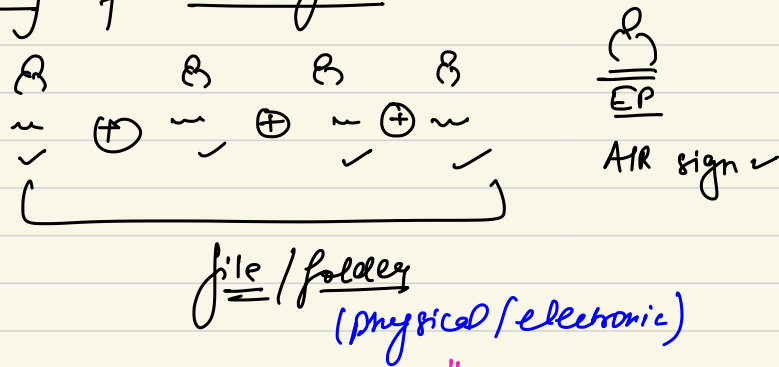 EP
AIR sign
file/folder
(physical/electronic)